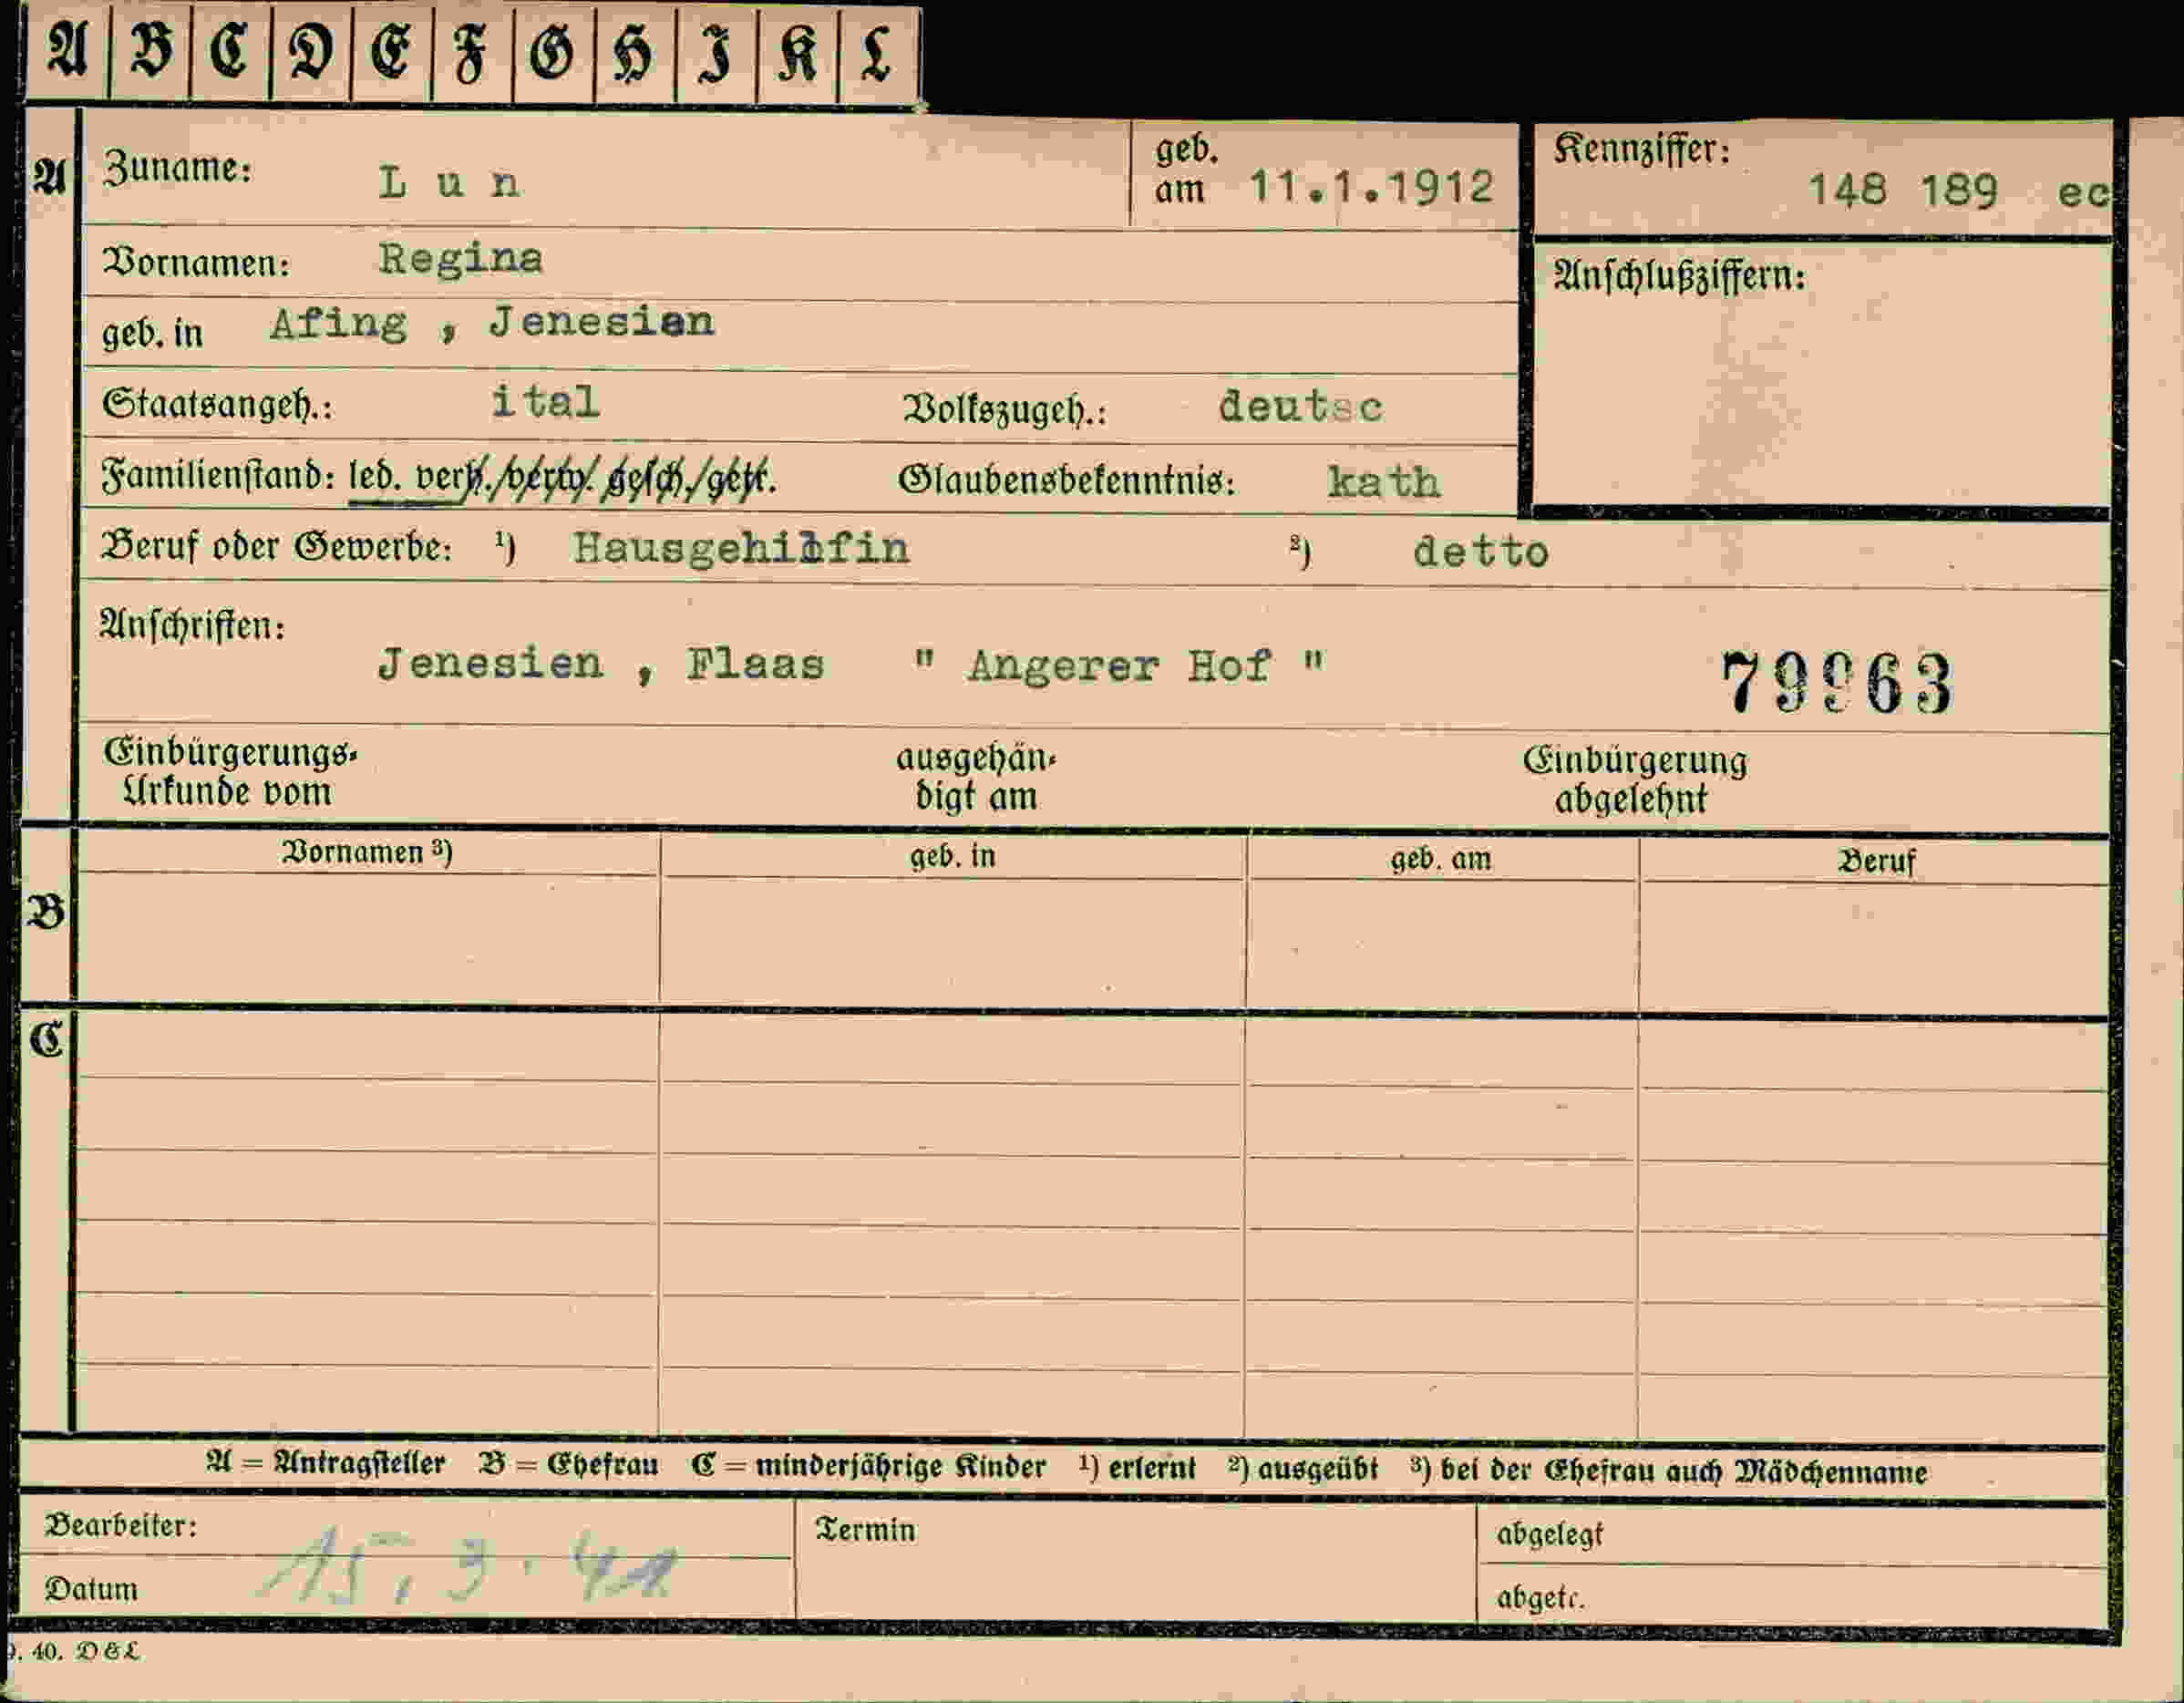 A B C D E F G H I K L
A Zuname: Lun geb. am 11.1.1912 Kennziffer: 148 189 ec
Vornamen: Regina Anschlußziffern:
geb. in Afing , Jenesien
Staatsangeh.: ital Volkszugeh.: deutsc
Familienstand: led. verh. verw. gesch. getr. Glaubensbekenntnis: kath
Beruf oder Gewerbe: ¹) Hausgehilfin ²) detto
Anschriften:
Jenesien , Flaas " Angerer Hof " 79963
Einbürgerungs- ausgehän- Einbürgerung
Urkunde vom digt am abgelehnt
Vornamen ³) geb. in geb. am Beruf
B
C
A = Antragsteller B = Ehefrau C = minderjährige Kinder ¹) erlernt ²) ausgeübt ³) bei der Ehefrau auch Mädchenname
Bearbeiter: Termin abgelegt
Datum 15. 3. abgetr.
40. D&L